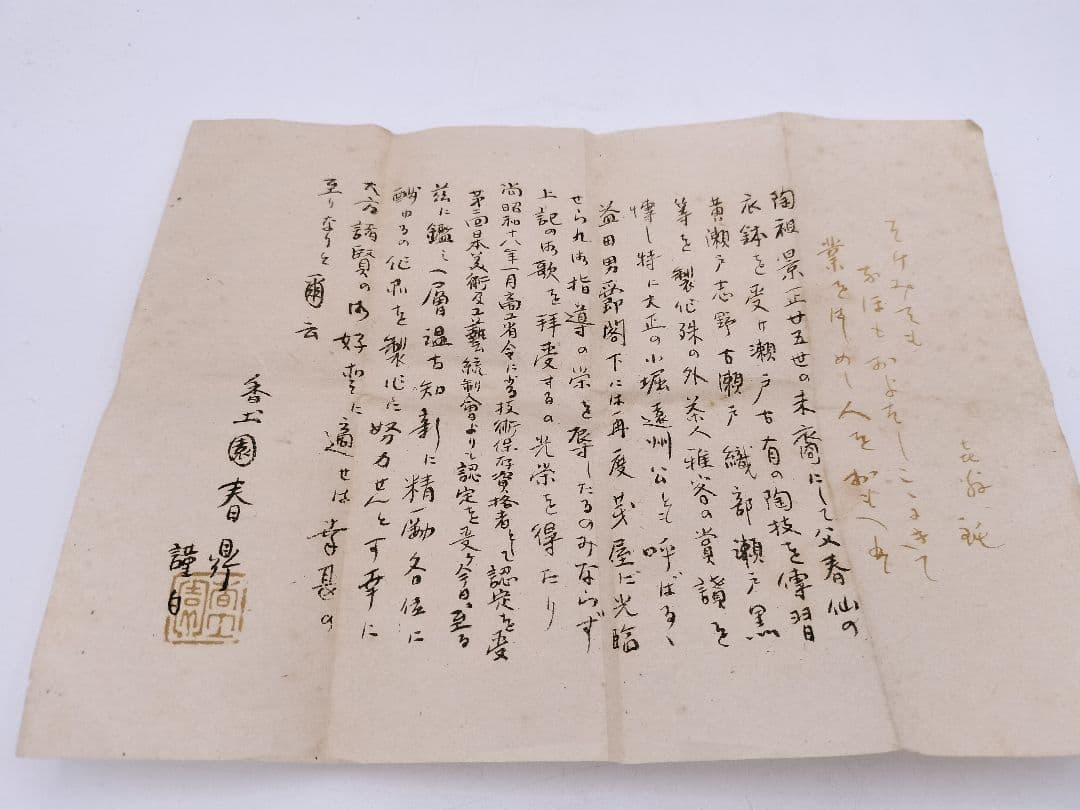 業をはしめし人をおもへや
陶祖景正廿五世の末裔にして父春仙の
衣鉢を受け瀬戸古有の陶技を傳習
黄瀬戸志野古瀬戸織部瀬戸黒
等を製作殊の外茶人雅客の賞讃を
博し特に大正の小堀遠州公とも呼ばるゝ
益田男爵閣下には再度茅屋に光臨
せられ御指導の栄を辱したるのみならず
上記の御歌を拝受するの光栄を得たり
尚昭和十八年一月商工省令に依る技術保存資格者として認定を受
第二回日本美術及工藝統制會より認定を受く今日に至る
茲に鑑み一層温古知新に精励各位に
酬ゆるの作品を製作に努力せんとす幸に
大方諸賢の御好みに適せは幸甚の
至りなりと爾云
香山園春鼎
謹白